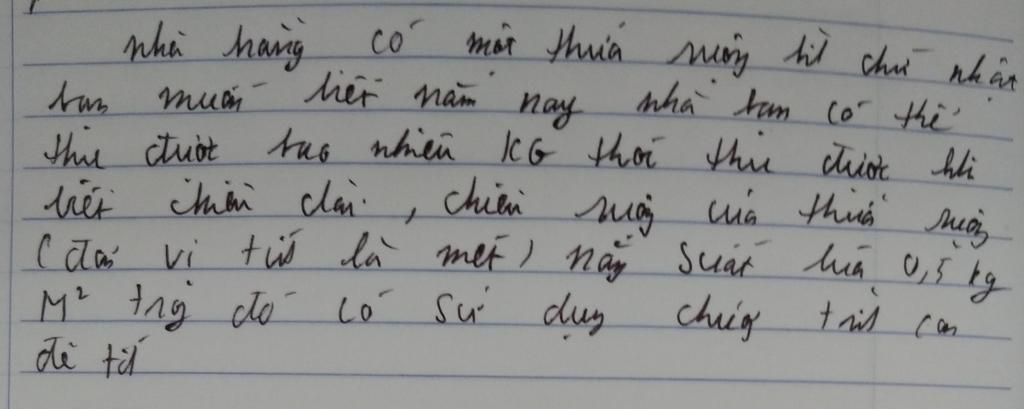 nhà hàng có một thuá ruộng hìh chữ nhật
ban muốn biết năm nay nhà ban có thể
thu được bao nhiêu KG thóc thu được khi
biết chiều dài, chiều ruộng của thuả ruộng
(đơn vị tíh là mét) năng suất lúa 0,5 kg
M² trong đó có sử dụng chương trìh con
để tíh